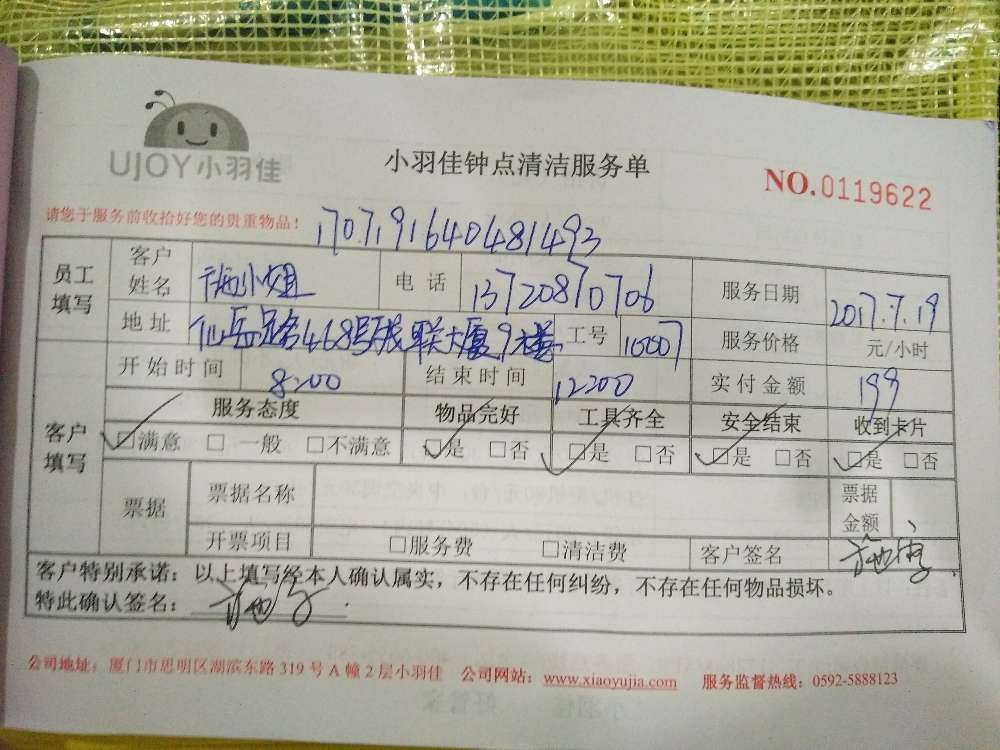 UJOY小羽佳
小羽佳钟点清洁服务单
NO.0119622
请您于服务前收拾好您的贵重物品！
1707191640481493
员工填写 客户姓名 施小姐 电话 13720870706 服务日期 2017.7.19
地址 仙岳路468号 联大厦9楼 工号 10007 服务价格 元/小时
开始时间 8:00 结束时间 12:00 实付金额 199
客户填写 服务态度 物品完好 工具齐全 安全结束 收到卡片
□满意 □一般 □不满意 □是 □否 □是 □否 □是 □否 □是 □否
票据 票据名称 票据金额
开票项目 □服务费 □清洁费 客户签名
客户特别承诺：以上填写经本人确认属实，不存在任何纠纷，不存在任何物品损坏。
特此确认签名：
公司地址：厦门市思明区湖滨东路319号A幢2层小羽佳 公司网站：www.xiaoyujia.com 服务监督热线：0592-5888123